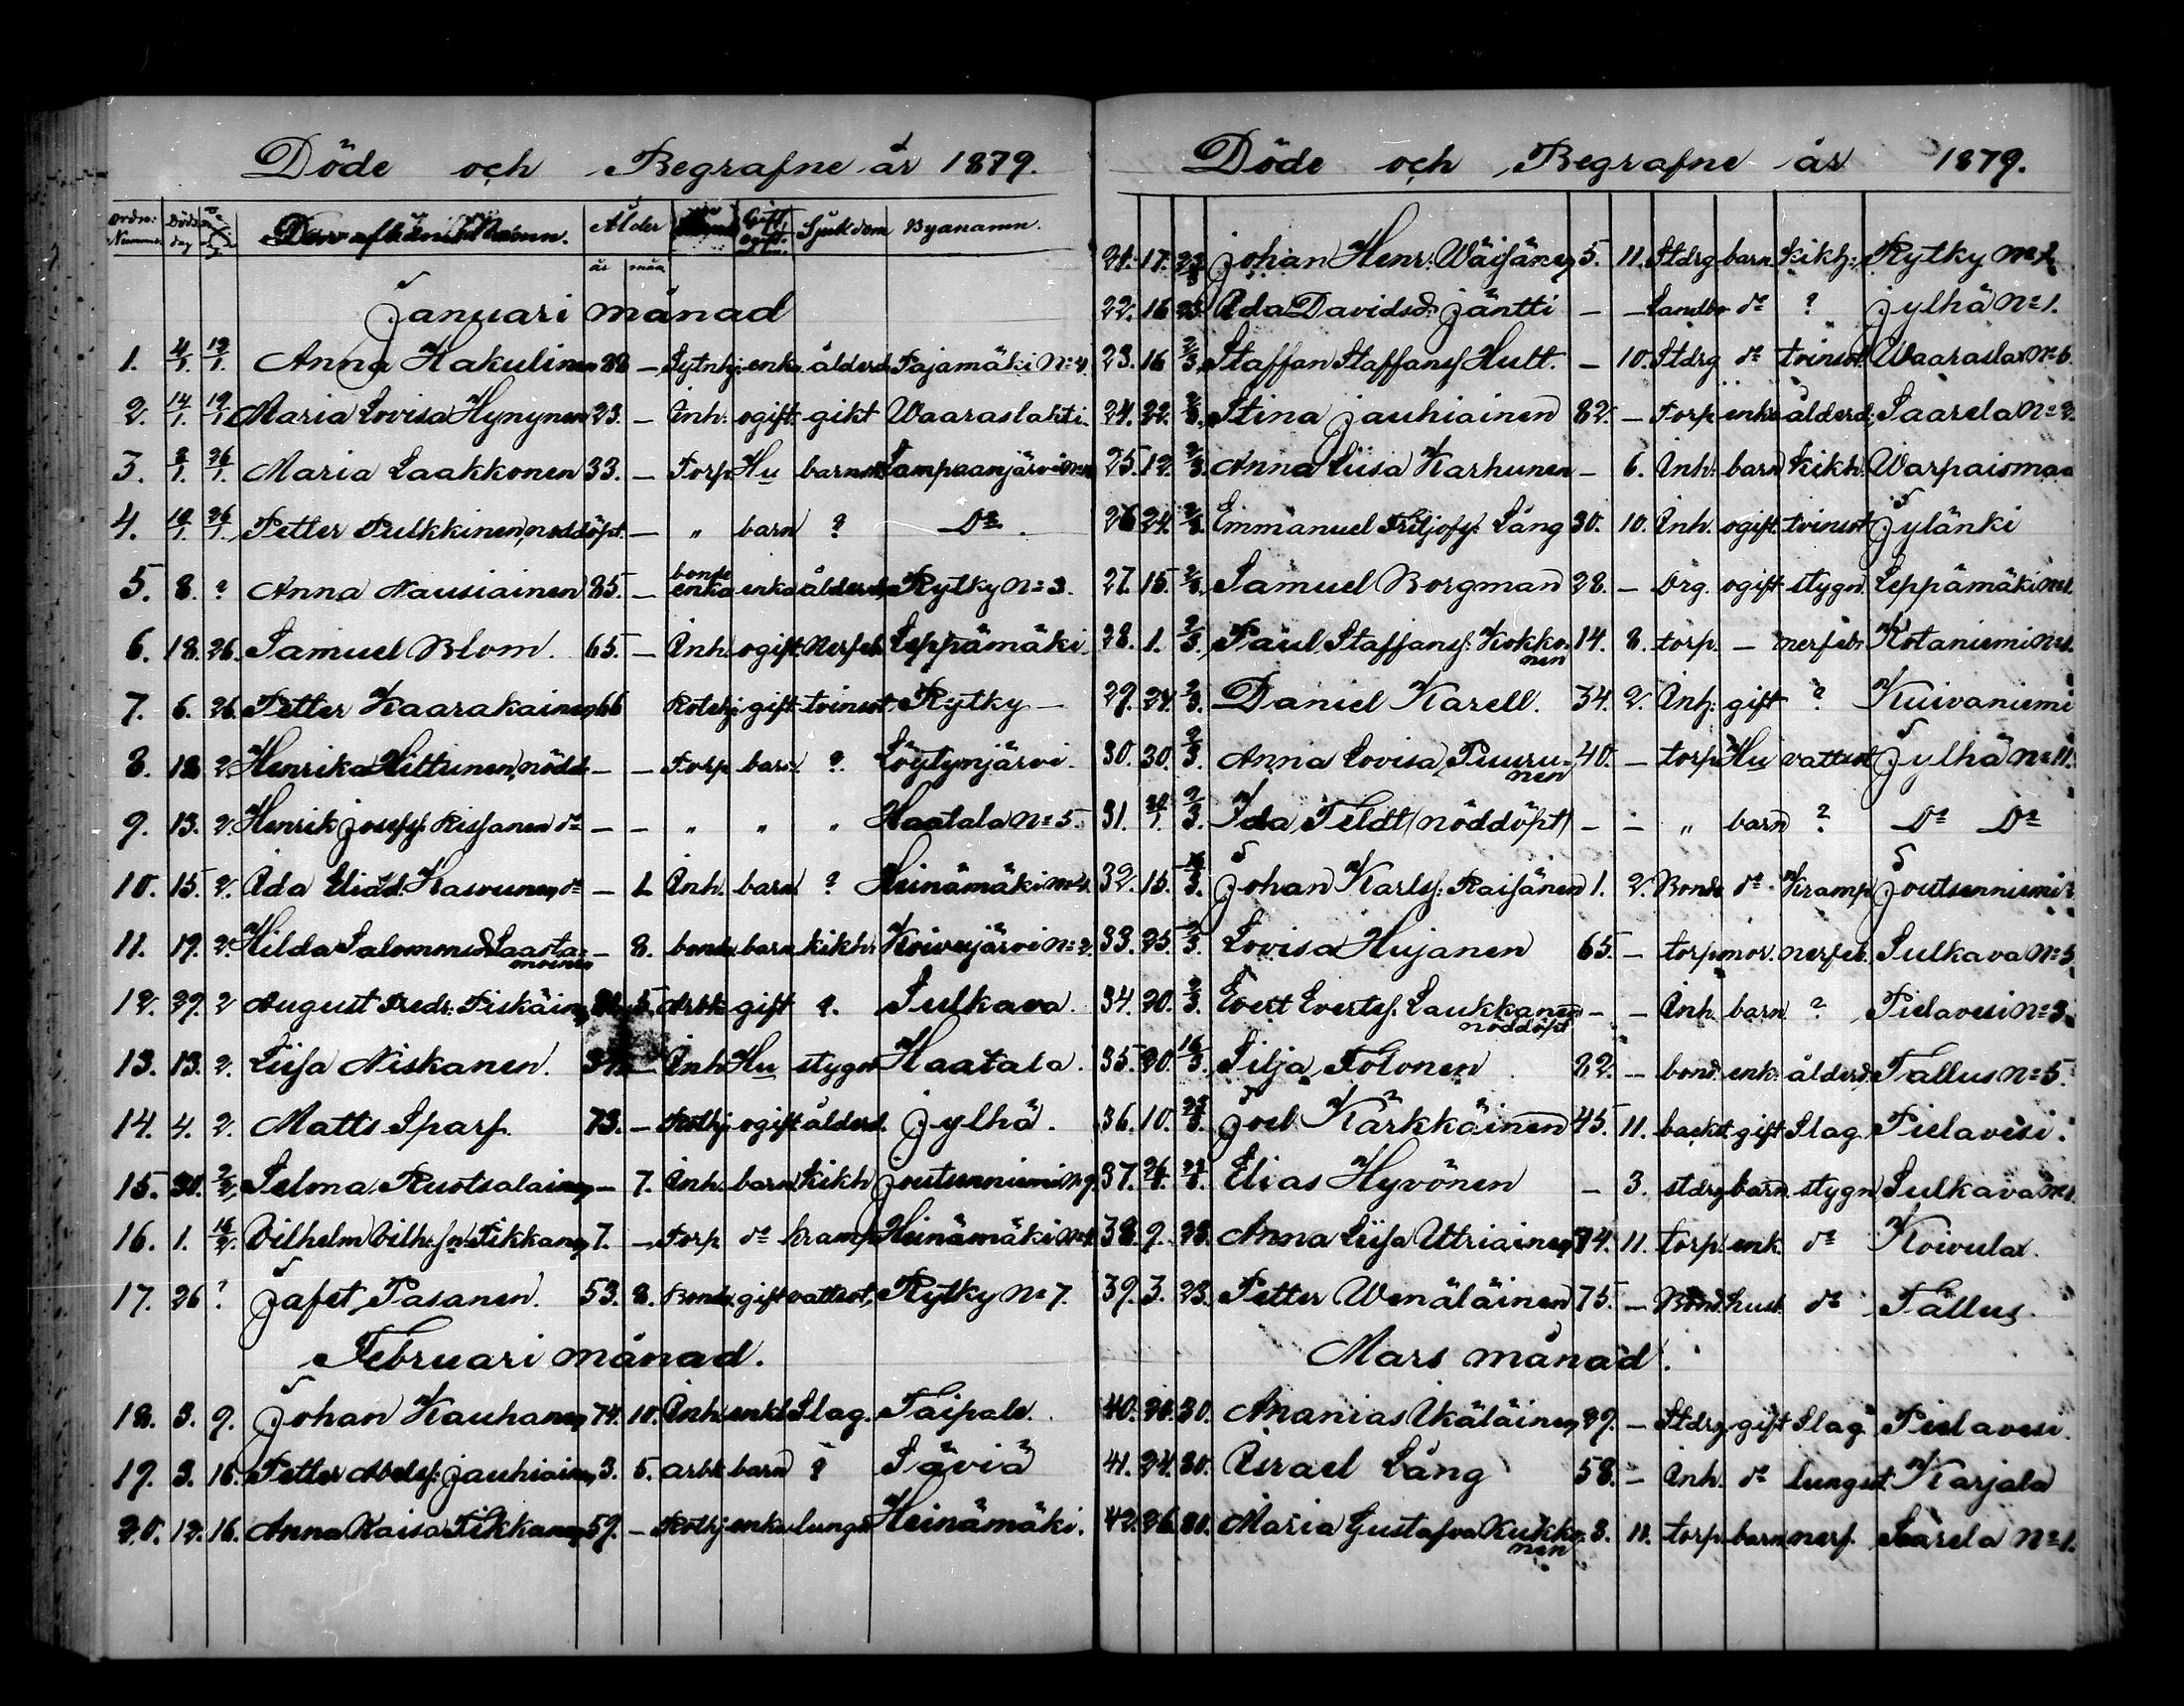 Döde och Begrafne år 1879.
Ordn: Nummer Döds dag Ålder Gift, ogift Sjukdom Byanamn.
år mån
Januari månad
1. 4/1. 19/1. Anna Hakulinen 88 — Sytnhj: enka ålderd. Pajamäki No 4.
2. 14/1. 19/1 Maria Lovisa Hynynen 23. — Inh: ogift gikt Waaraslahti.
3. 2/1. 26/1. Maria Laakkonen 33. — Torp Hu barns. Lampaanjärvi
4. 19/1. 26/1. Petter Pulkkinen, nöddöpt. — " barn ? Do.
5. 8. ? Anna Nausiainen 85. — bonde enka enka ålderd. Rytky No 3.
6. 18. 26. Samuel Blom. 65. — Inh. ogift Nerfeb. Leppämäki
7. 6. 26. Petter Kaarakainen 66 Rotehj: gift tvinsot Rytky —
8. 18 2 Henrika Hiltunen, nödd — — Torp barn ? Löytynjärvi.
9. 13. 2. Henrik Josefss. Kissanen do — — " " " Haatala No 5.
10. 15. 2. Ida Eliasd: Kasvunen, do — 1 Inh. barn ? Heinämäki No 4.
11. 19. 2. Hilda Salomonsd Saastamoinen — 8. bonde barn kikh: Koivujärvi No 2.
12. 29. 2 August Fredr: Piskäinen 5. Arbk gift ?. Sulkava.
13. 13. 2. Liisa Niskanen. — Inh Hu stygn Haatala.
14. 4. 2. Matts Sparf. 73. — Rothj ogift ålderd. Jylhä.
15. 30. 2/2. Selma Ruotsalainen — 7. Inh. barn Kikh Joutsenniemi N 9.
16. 1. 16/2. Vilhelm Vilh:sn Tikkanen 7. — Torp do kramp Heinämäki
17. 26 ? Jafet Pasanen. 53. 8. Bonde gift vattsot. Rytky No 7.
Februari månad.
18. 3. 9. Johan Kauhanen 74. 10. Inh enkl Slag. Taipale.
19. 3. 16. Petter Abelss: Jauhiainen 3. 5. arbk barn ? Säviä
20. 12. 16. Anna Kaisa Tikkanen 59. — Rothj enka lungs Heinämäki.
Döde och Begrafne år 1879.
21. 17. 23/3 Johan Henr: Wäisänen 5. 11. Stdrg barn Kikh: Rytky
22. 16 23. Ida Davidsd: Jäntti — — Landbo do ? Jylhä No 1.
23. 16 2/3. Staffan Staffanss Hult. — 10. Stdrg do tvinsot. Waaraslax No 6.
24. 22. 2/3. Stina Jauhiainen 82. — Torp enka ålderd: Saarela No 2.
25. 12. 2/3. Anna Liisa Karhunen — 6. Inh: barn Kikh. Warpaismaa
26 24. 2/3. Emmanuel Lång 30. 10. Inh. ogift. tvinsot Jylänki
27. 15. 2/3. Samuel Borgman 28. — Drg. ogift stygn. Leppämäki No 1.
28. 1. 2/3. Paul Staffanss: Kokkonen 14. 8. torp. — nerfeb: Kotaniemi No 1.
29. 24. 2/3. Daniel Karell. 34. 2. Inh: gift ? Kuivaniemi
30. 30. 2/3. Anna Lovisa Puurunen 40. — torp Hu vattsot Jylhä No 11.
31. 2/3. Ida Feldt (nöddöpt) — — " barn ? Do Do
32. 15. 16/3. Johan Karlss: Raisänen 1. 2. Bonde do Kramp Joutsenniemi
33. 25. 2/3. Lovisa Hujanen 65. — torp mor. nerfeb. Sulkava No 5
34. 20. 2/3. Evert Evertss. Laukkanen nöddöpt — — Inh barn ? Pielavesi No 3.
35. 20. 16/3. Silja Tolonen 82. — bond. enk. ålderd. Tallus No 5.
36. 10. 23/3. Joel Kärkkäinen 45. 11. backst. gift Slag. Pielavesi.
37. 24. 23/3. Elias Hyvönen — 3. stdrg barn. stygn Sulkava
38. 9. 23. Anna Liisa Uttriainen 74. 11. torp. enk. do Koivula.
39. 3. 23. Petter Wenäläinen 75. — Bond. husb. do Tallus.
Mars månad.
40. 20. 30. Ananias Ukäläinen 39. — Stdrg. gift Slag Pielavesi.
41. 24. 30. Israel Lång 58. — Inh. do lungsot. Karjala
42. 26. 30. Maria Gustafva Kukkonen 3. 11. torp. barn nerf. Saarela No 1.